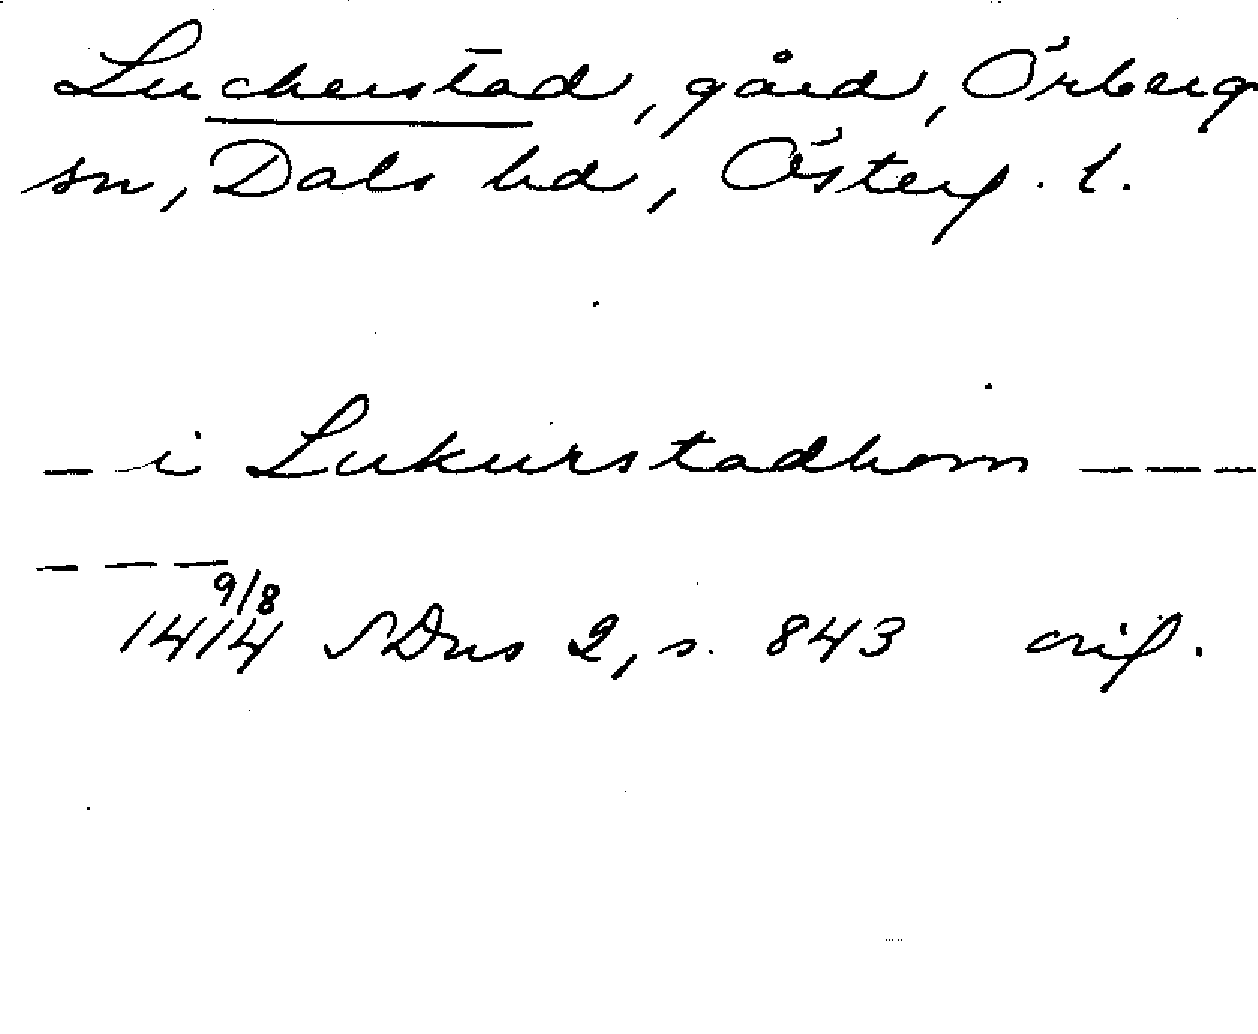 Luckerstad, gård, Örberg
sn, Dals hd, Österg. l.
– i Lukurstadhom – – –
– – –
1414 9/8 SDns 2, s. 843 orig.